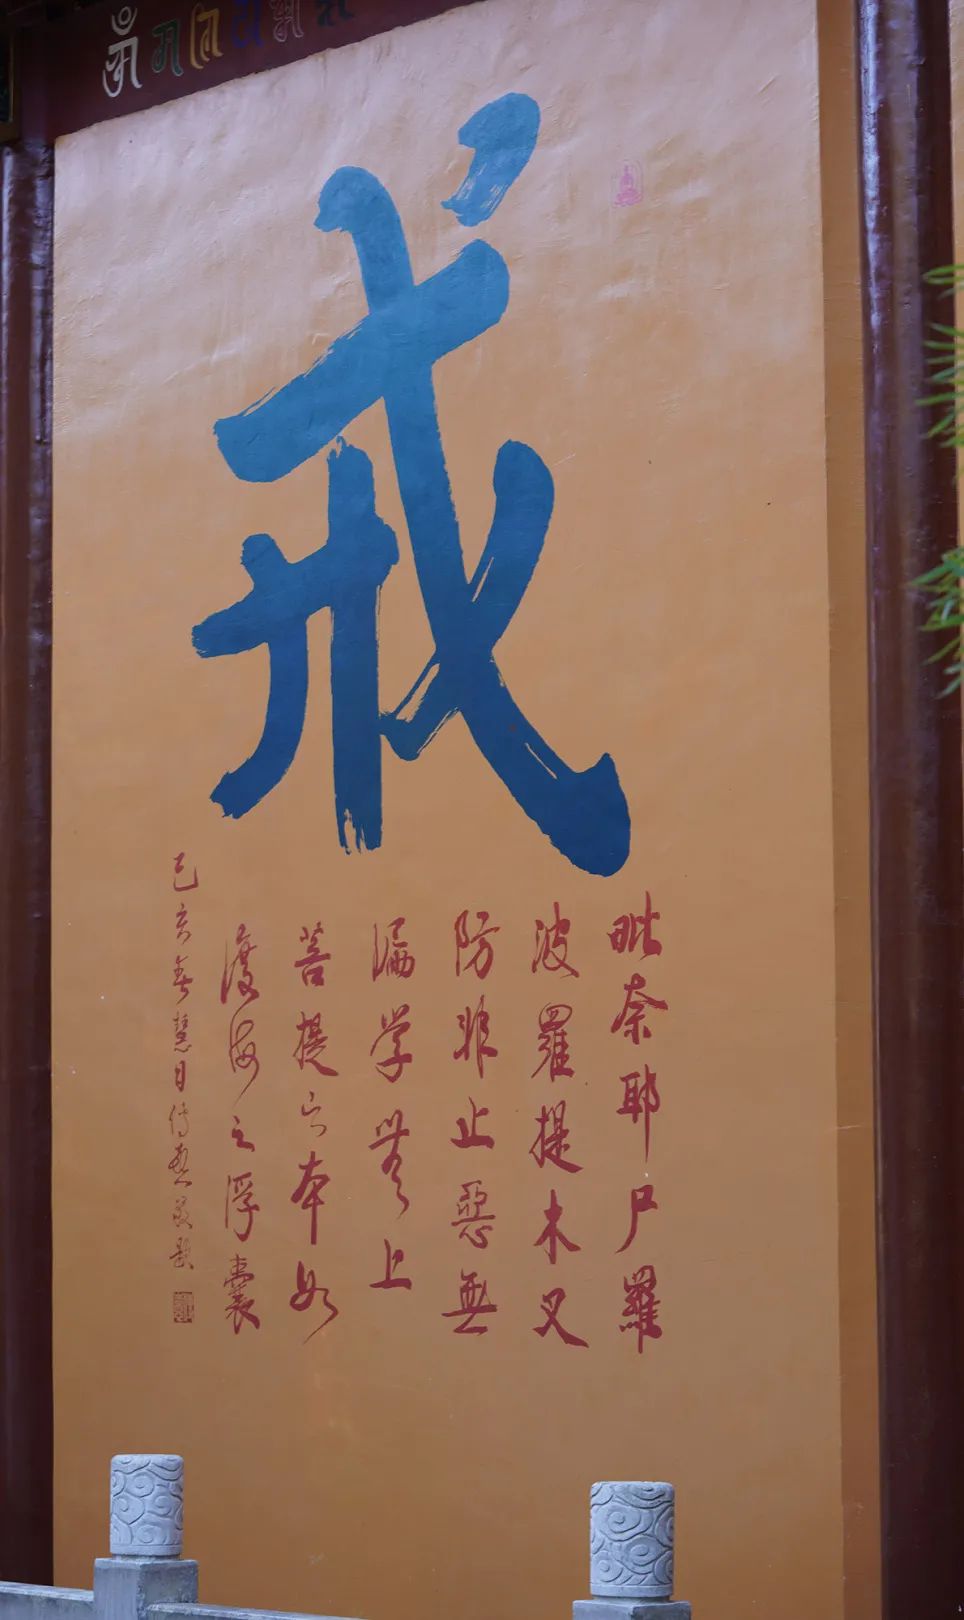 戒
毗奈耶尸羅
波羅提木叉
防非止惡無
漏学無上
菩提之本如
渡海之浮囊
己亥春慧日传题